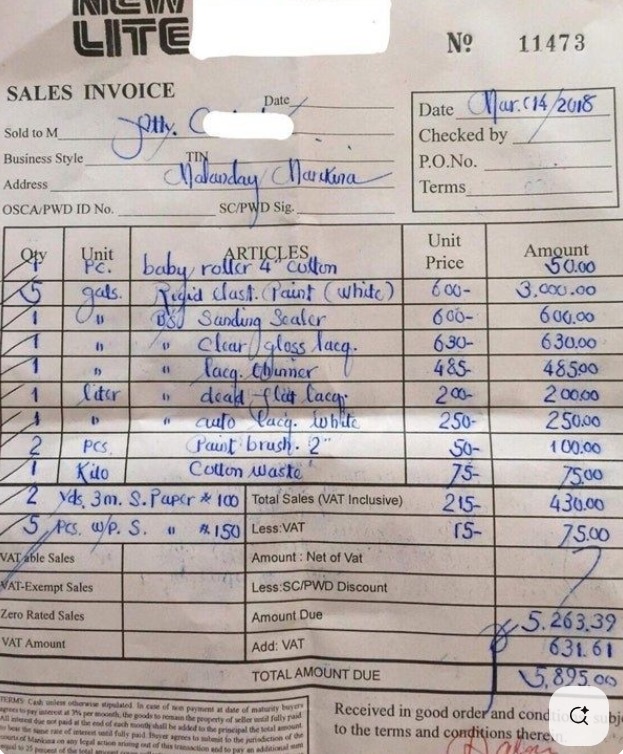 NEW
LITE
Nº 11473
SALES INVOICE
Date
Date Mar. 14/2018
Sold to M
Checked by
Business Style TIN
P.O.No.
Address Malanday Marikina
Terms
OSCA/PWD ID No. SC/PWD Sig.
Qty Unit ARTICLES Unit Price Amount
1 Pc. baby roller 4" cotton 50.00
5 gals. Rigid Elast. Paint (White) 600- 3,000.00
1 " Sanding Sealer 600- 600.00
1 " " Clear gloss lacq. 630- 630.00
1 " " lacq. thinner 485- 485.00
1 liter " dead flat lacq. 200- 200.00
1 " " auto lacq. White 250- 250.00
2 pcs Paint brush. 2" 50- 100.00
1 Kilo Cotton waste 75- 75.00
2 yds. 3m. S. Paper # 100 Total Sales (VAT Inclusive) 215- 430.00
5 Pcs. w/P. S. " #.150 Less:VAT 15- 75.00
VATable Sales Amount : Net of Vat
VAT-Exempt Sales Less:SC/PWD Discount
Zero Rated Sales Amount Due 5.263.39
VAT Amount Add: VAT 631.61
TOTAL AMOUNT DUE 5,895.00
TERMS: Cash unless otherwise stipulated. In case of non payment at date of maturity buyers
agrees to pay interest at 3% per month; the goods to remain the property of seller until fully paid.
All interest due not paid at the end of each month shall be added to the principal the total amount
to bear the same rate of interest until fully paid. Buyer agrees to submit to the jurisdiction of the
courts of Marikina on any legal action arising out of this transaction and to pay an additional sum
equal to 25 percent of the total amount
Received in good order and condition subj
to the terms and conditions therein.